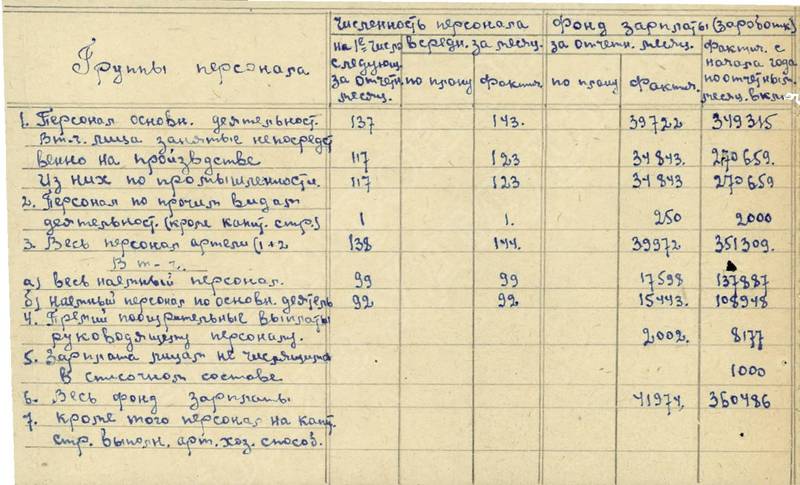 Группы персонала
Численность персонала
Фонд зарплаты (заработк)
на 1е число следующ. за отчетн. месяц.
в средн. за месяц.
за отчетн. месяц.
Фактич. с начала года по отчетный месяц. включ
по плану
фактич.
по плану
фактич.
1. Персонал основн. деятельност. 137 143. 39722 349315
В т.ч. лица занятые непосредст
венно на производстве 117 123 34843. 270659.
Из них по промышленности. 117 123 34843 270659
2. Персонал по прочим видам
деятельност. (кроме капит. стр.) 1 1. 250 2000
3. Весь персонал артели (1+2 138 144. 39972 351309.
В т-ч.
а) весь наемный персонал. 99 99 17598 137887
б) наемный персонал по основн. деятель 92 92 15443. 108948
4. Премий поощрительные выплаты
руководящему персоналу. 2002. 8177
5. Зарплата лицам не числящимся
в списочном составе 1000
6. Весь фонд зарплаты 41974. 360486
7. кроме того персонал на капит.
стр. выполн. арт. хоз. способ.